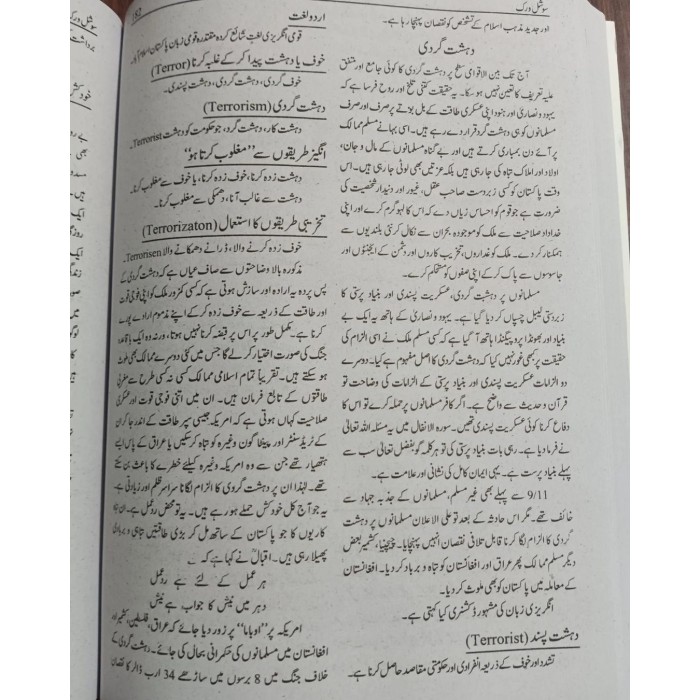 سوشل ورک
182
اور جدید مذہب اسلام کے تشخص کو نقصان پہنچا رہا ہے۔
دہشت گردی
آج تک بین الاقوامی سطح پر دہشت گردی کا کوئی جامع اور متفق
علیہ تعریف کا تعین نہیں ہو سکا۔ یہ حقیقت کتنی تلخ اور روح فرسا ہے کہ
یہود و نصاریٰ اور ہنود اپنی عسکری طاقت کے بل بوتے پر صرف اور صرف
مسلمانوں کو ہی دہشت گرد قرار دے رہے ہیں۔ اسی بہانے مسلم ممالک
پر آئے دن بمباری کرتے ہیں اور بے گناہ مسلمانوں کے مال و جان،
اولاد اور املاک تباہ کی جا رہی ہیں بلکہ عزتیں بھی لوٹی جا رہی ہیں۔ اس
وقت پاکستان کو کسی زبردست صاحب عقل، غیور اور دیندار شخصیت کی
ضرورت ہے جو قوم کو احساس زیاں دے کہ اس کا لہو گرم کرے اور اپنی
خداداد صلاحیت سے ملک کو موجودہ بحران سے نکال کر ترقی بلندیوں سے
ہمکنار کر دے۔ ملک کو غداروں، تخریب کاروں اور دشمن کے ایجنٹوں اور
جاسوسوں سے پاک کر کے اپنی صفوں کو مستحکم کرے۔
مسلمانوں پر دہشت گردی، عسکریت پسندی اور بنیاد پرستی کا
زبردستی لیبل چسپاں کر دیا گیا ہے۔ یہود و نصاریٰ کے ہاتھ یہ ایک بے
بنیاد اور بھونڈا پروپیگنڈا ہاتھ آ گیا ہے کہ کسی مسلم ملک نے اسی الزام کی
حقیقت پر کبھی غور نہیں کیا کہ دہشت گردی کا اصل مفہوم کیا ہے۔ دوسرے
دو الزامات عسکریت پسندی اور بنیاد پرستی کے الزامات کی وضاحت تو
قرآن و حدیث سے واضح ہے۔ اگر کافر مسلمانوں پر حملہ کرے تو اس کا
دفاع کرنا کوئی عسکریت پسندی تھیں۔ سورہ الانفال میں یہ مسئلہ اللہ تعالیٰ
نے فرما دیا ہے۔ رہی بات بنیاد پرستی کی تو ہر کلمہ گو بفضل تعالیٰ سب سے
پہلے بنیاد پرست ہے۔ یہی ایمان کامل کی نشانی اور علامت ہے۔
9/11 سے پہلے بھی غیر مسلم، مسلمانوں کے جذبہ جہاد سے
خائف تھے۔ مگر اس حادثہ کے بعد تو علی الاعلان مسلمانوں پر دہشت
گردی کا الزام لگا کر ناقابل تلافی نقصان انہیں پہنچایا۔ چیچنیا، کشمیر بعض
دیگر مسلم ممالک پھر عراق اور افغانستان کو تباہ و برباد کر دیا۔ افغانستان
کے معاملہ میں پاکستان کو بھی ملوث کر دیا۔
انگریزی زبان کی مشہور ڈکشنری کیا کہتی ہے۔
دہشت پسند (Terrorist)
تشدد اور خوف کے ذریعہ انفرادی اور حکومتی مقاصد حاصل کرنا ہے۔
اردو لغت
قومی انگریزی لغت شائع کردہ مقتدرہ قومی زبان پاکستان اسلام آباد۔
خوف یا دہشت پیدا کر کے غلبہ کرنا (Terror)
خوف گردی، دہشت گردی، دہشت پسندی۔
دہشت گردی (Terrorism)
دہشت کار، دہشت گرد، جو حکومت کو دہشت Terrorist۔
انگیز طریقوں سے “مغلوب کرتا ہو”
دہشت زدہ کرنا، خوف زدہ کرنا، یا خوف سے مغلوب کرنا۔
دہشت سے غالب آنا، دھمکی سے مغلوب کرنا۔
تخریبی طریقوں کا استعمال (Terrorizaton)
خوف زدہ کرنے والا، ڈرانے دھمکانے والا Terrorisen۔
مذکورہ بالا وضاحتوں سے صاف عیاں ہے کہ دہشت گردی کے
پس پردہ یہ ارادہ اور سازش ہوتی ہے کہ کسی کمزور ملک کو اپنی فوجی قوت
اور طاقت کے ذریعہ سے خوف زدہ کر کے اپنے مذموم ارادے پورے
کرنا ہے۔ مکمل طور پر اس پر قبضہ کرنا نہیں ہوتا، ورنہ وہ ایک باقاعدہ
جنگ کی صورت اختیار کر لے گا جس میں کئی دوسرے ممالک بھی ملوث
ہو سکتے ہیں۔ تقریباً تمام اسلامی ممالک کسی نہ کسی طرح سے مغربی
طاقتوں کے تابع فرمان ہیں۔ ان میں اتنی فوجی قوت اور عسکری
صلاحیت کہاں ہوتی ہے کہ امریکہ جیسی سپر طاقت کے اندر جا کر ان
کے ٹریڈ سنٹر اور پینٹا گون وغیرہ کو تباہ کر سکیں یا عراق کے پاس ایسے
ہتھیار تھے جن سے وہ امریکہ وغیرہ کیلئے خطرے کا باعث بن سکتے
تھے۔ لہٰذا ان پر دہشت گردی کا الزام لگانا سراسر ظلم اور زیادتی ہے۔
یہ جو آج کل خودکش حملے ہو رہے ہیں۔ یہ تو محض ردعمل ہے۔ ان تباہ
کاریوں کا جو پاکستان کے ساتھ مل کر بڑی طاقتیں تباہی و بربادی
پھیلا رہی ہیں۔ اقبالؒ نے کہا ہے کہ
ہر عمل کے لئے ہے ردعمل
دہر میں نیش کا جواب ہے نیش
امریکہ پر “اوباما” پر زور دیا جائے کہ عراق، فلسطین، کشمیر اور
افغانستان میں مسلمانوں کی حکمرانی بحال کی جائے۔ دہشت گردی کے
خلاف جنگ میں 8 برسوں میں ساڑھے 34 ارب ڈالر کا نقصان